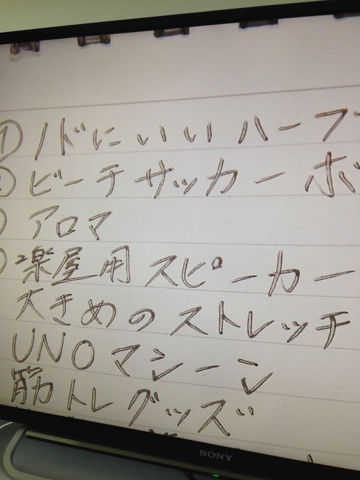 ① ノドにいいハーブ
ビーチサッカーボ
アロマ
楽屋用スピーカー
大きめのストレッチ
UNOマシーン
筋トレグッズ
SONY